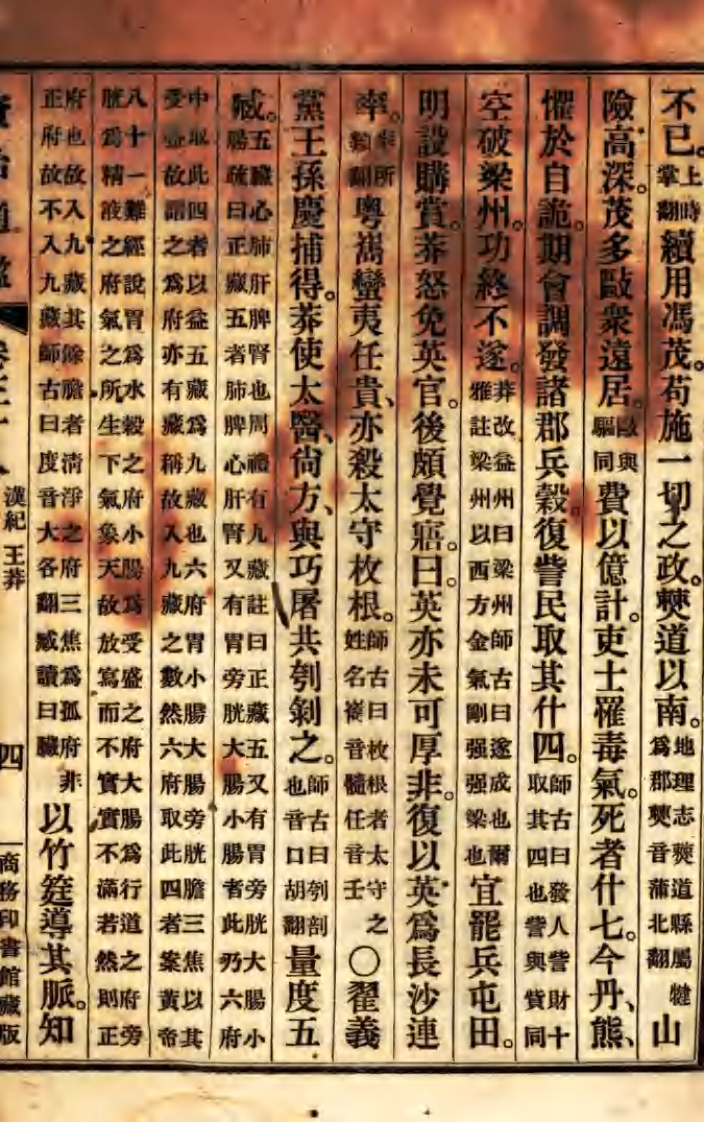 不已。掌上翻時續用馮茂。苟施一切之政。僰道以南。地理志僰道縣屬犍為郡僰音蒲北翻山
險高深。茂多敺衆遠居。敺與驅同費以億計。吏士罹毒氣。死者什七。今丹、熊、
懼於自詭。期會調發諸郡兵穀。復訾民取其什四。師古曰發人訾財十取其四也訾與貲同
空破梁州。功終不遂。莽改益州曰梁州師古曰遂成也爾雅註梁州以西方金氣剛强强梁也宜罷兵屯田。
明設購賞。莽怒免英官。後頗覺寤。曰。英亦未可厚非。復以英爲長沙連
率。率所類翻粵巂蠻夷任貴、亦殺太守枚根。師古曰枚根者太守之姓名巂音髓任音壬〇翟義
黨王孫慶捕得。莽使太醫、尙方、與巧屠共刳剝之。師古曰刳剖也音口胡翻量度五
臧。五臟心肺肝脾腎也周禮有九藏註曰正藏五又有胃旁胱大腸小腸疏曰正藏五者肺脾心肝腎又有胃旁胱大腸小腸者此乃六府
中取此四者以益五藏爲九藏也六府胃小腸大腸旁胱膽三焦以其受盛故謂之爲府亦有藏稱故入九藏之數然六府取此四者案黃帝
八十一難經說胃爲水穀之府小腸爲受盛之府大腸爲行道之府旁胱爲精液之府氣之所生下氣象天故放寫而不實實不滿若然則正
府也故入九藏其餘膽者清淨之府三焦爲孤府非正府故不入九藏師古曰度音大各翻臧讀曰臟以竹筳導其脈。知
漢紀 王莽
四
商務印書館藏版